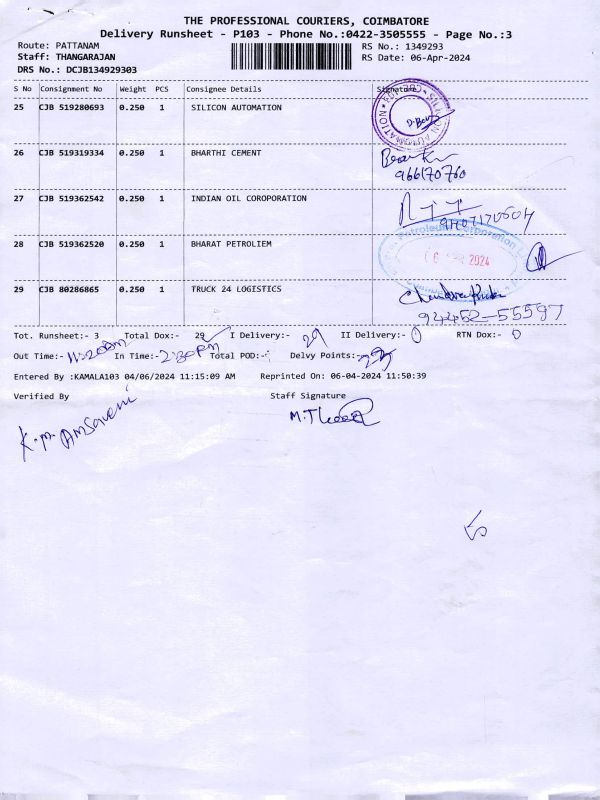 THE PROFESSIONAL COURIERS, COIMBATORE
Delivery Runsheet - P103 - Phone No.:0422-3505555 - Page No.:3
Route: PATTANAM RS No.: 1349293
Staff: THANGARAJAN RS Date: 06-Apr-2024
DRS No.: DCJB134929303
S No Consignment No Weight PCS Consignee Details Signature
25 CJB 519280693 0.250 1 SILICON AUTOMATION
26 CJB 519319334 0.250 1 BHARTHI CEMENT
966170760
27 CJB 519362542 0.250 1 INDIAN OIL COROPORATION
28 CJB 519362520 0.250 1 BHARAT PETROLIEM
2024
29 CJB 80286865 0.250 1 TRUCK 24 LOGISTICS
94452-55597
Tot. Runsheet:- 3 Total Dox:- 29 I Delivery:- 29 II Delivery:- 0 RTN Dox:- 0
Out Time:- 11:20am In Time:- 2:30PM Total POD:- Delvy Points:-
Entered By :KAMALA103 04/06/2024 11:15:09 AM Reprinted On: 06-04-2024 11:50:39
Verified By Staff Signature